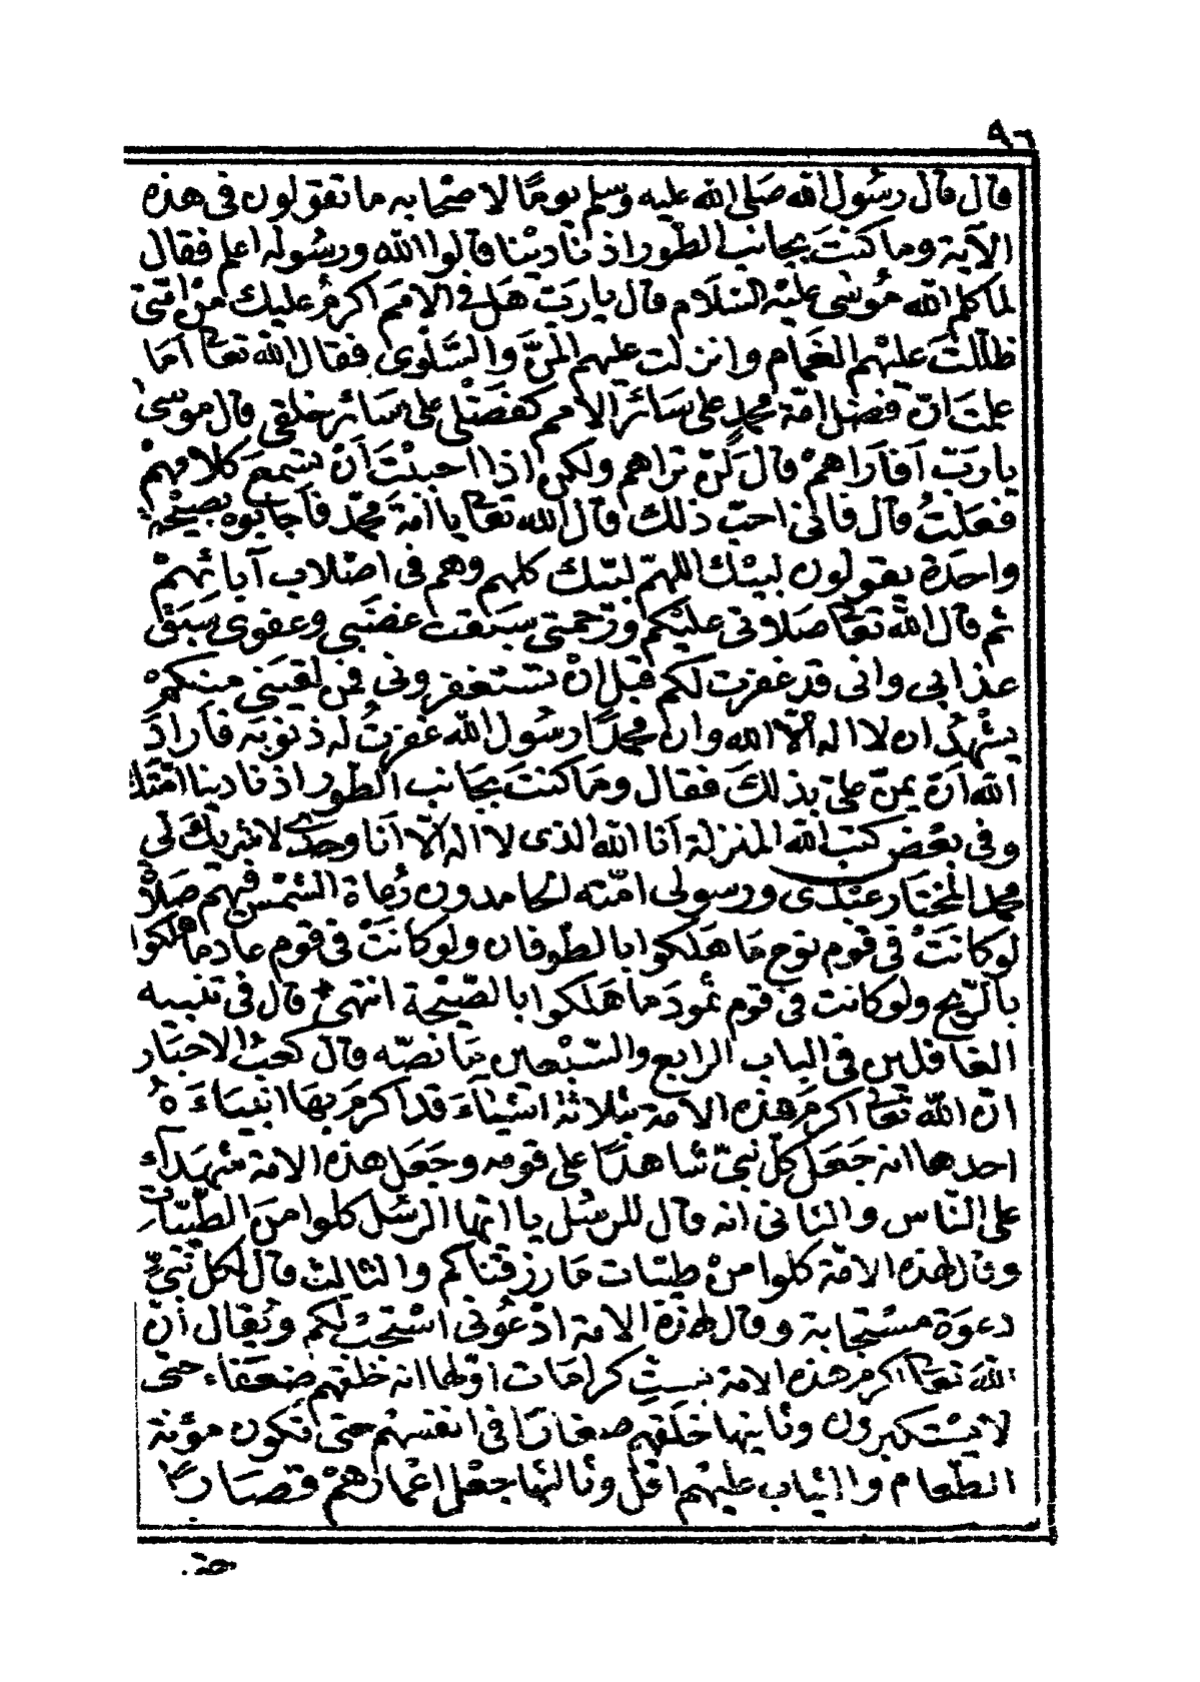 ٩٦
قال قال رسول الله صلى الله عليه وسلم يومًا لاصحابه ما تقولون فى هذه
الآية وما كنتَ بجانب الطور اذ نادينا قالوا الله ورسوله اعلم فقال
لما كلم الله موسى عليه السلام قال يا ربّ هل فى الامم اكرم عليك من امّتى
ظلّلتَ عليهم الغمام وانزلت عليهم المنّ والسّلوى فقال الله تعالى اما
علمتَ انّ فضل امّة محمد على سائر الامم كفضلى على سائر خلقى قال موسى
يا ربّ أفأراهم قال لن تراهم ولكن اذا احببتَ أنْ تسمع كلامهم
فعلتُ قال فانى احبّ ذلك قال الله تعالى يا امّة محمّد فأجابوه بصيحة
واحدة يقولون لبيك اللهمّ لبيك كلهم وهم فى اصلاب آبائهم
ثم قال الله تعالى صلاتى عليكم ورحمتى سبقت غضبى وعفوى سبق
عذابى وانى قد غفرت لكم قبل انْ تستغفرونى فمن لقينى منكم
يشهد ان لا اله الّا الله وان محمدًا رسول الله غفرتُ له ذنوبه فأرادَ
الله أن يمنّ علىّ بذلك فقال وما كنتَ بجانب الطور اذ نادينا امّتك
وفى بعض كتب الله المنزلة أنا الله الذى لا اله الّا أنا وحدى لا شريك لى
محمد المختار عبدى ورسولى امّته الحامدون رُعاة الشّمس فيهم صلاة
لو كانتْ فى قوم نوح ما هلكوا بالطّوفان ولو كانتْ فى قوم عاد ما هلكوا
بالرّيح ولو كانت فى قوم ثمودَ ما هلكوا بالصّيحة انتهى قال فى تنبيه
الغافلين فى الباب الرابع والسّبعين ما نصّه قال كعب الاحبار
انّ الله تعالى اكرم هذه الامة بثلاثة اشياءَ قد اكرم بها انبياءَهُ
احدها انه جعل كلّ نبىّ شاهدًا على قومه وجعل هذه الامة شهداء
على النّاس والثانى انه قال للرسُل يا ايّها الرسُل كلوا منَ الطّيّبات
وقال لهذه الامّة كلوا منْ طيّبات ما رزقناكم والثالث قال لكل نبىٍّ
دعوة مستجابة وقال لهذه الامة ادْعُونى استجبْ لكم ويُقال انّ
الله تعالى اكرم هذه الامة بستّ كرامات اوّلها انه خلقهم ضعفاء حتى
لا يستكبرون وثانيها خلقهم صغارًا فى انفسهم حتى تكون مؤنة
الطّعام والثياب عليهم اقلّ وثالثها جعل اعمارهمْ قصارًا